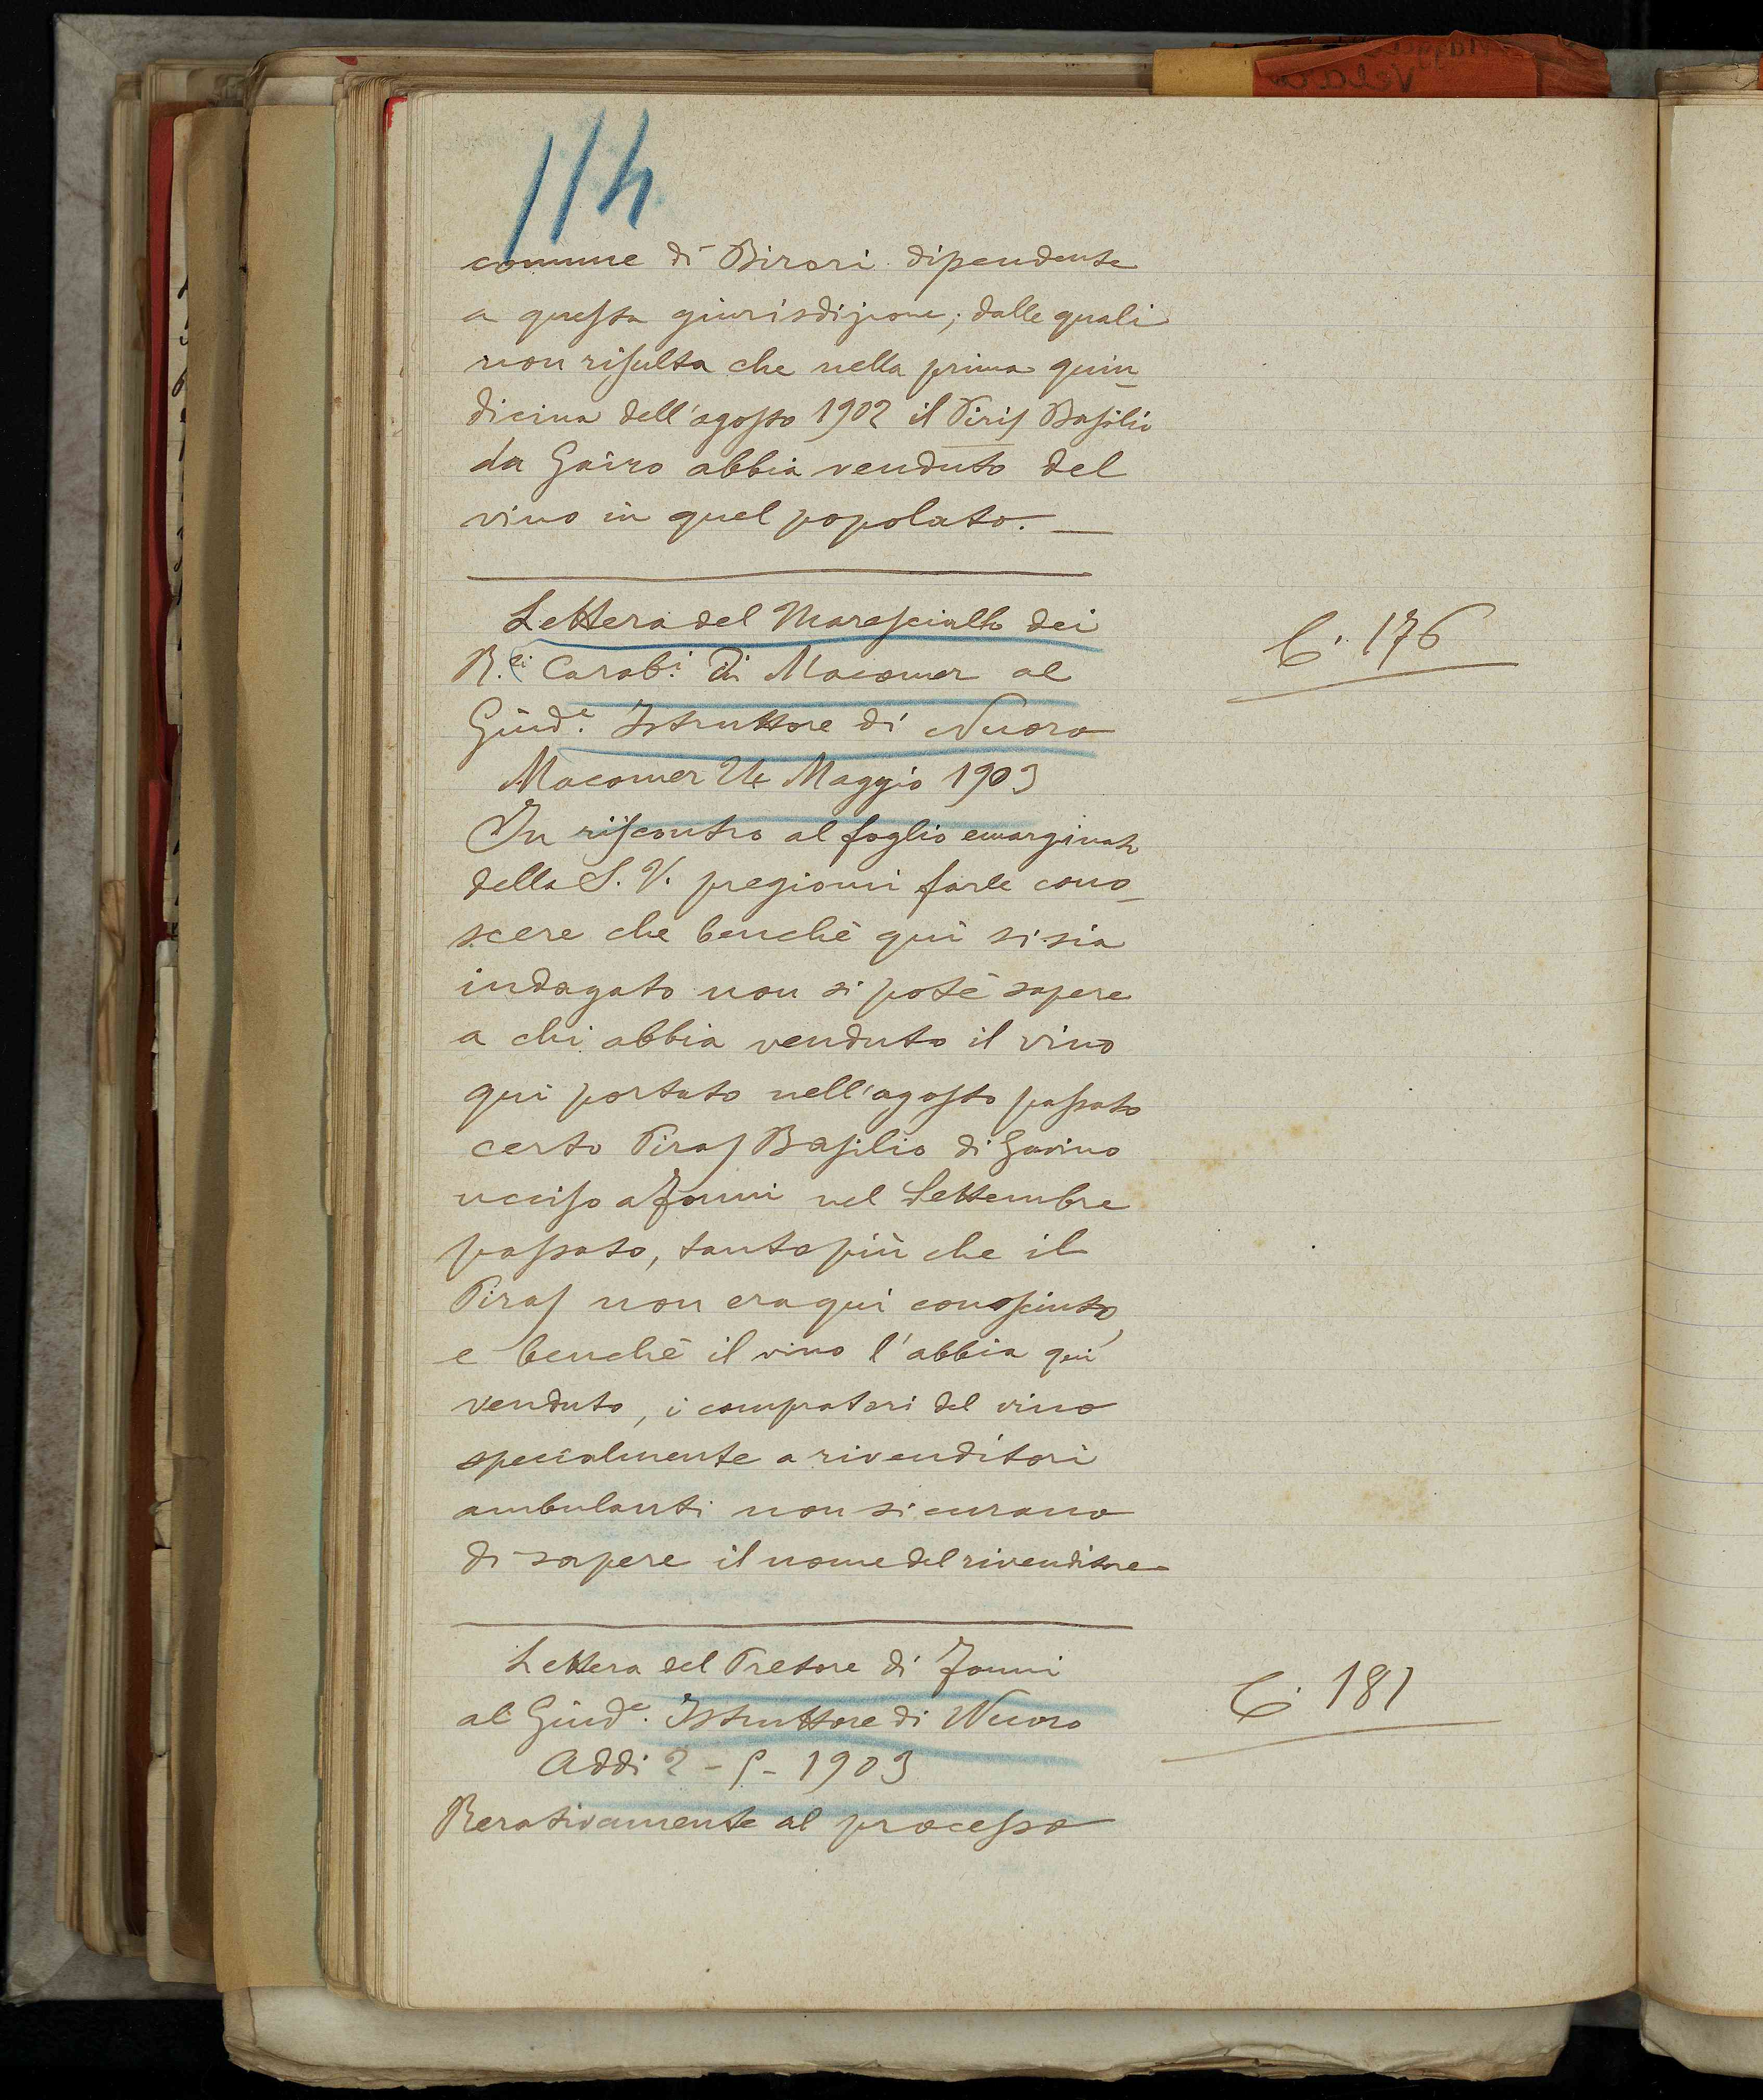 114
comune di Birori dipendente
a questa giurisdizione; dalle quali
non risulta che nella prima quin_
dicina dell'agosto 1902 il Piris Basilio
da Gairo abbia venduto del
vino in quel popolato. _
Lettera del Maresciallo dei
R.li Carab.i di Macomer al
C. 176
Giud.e Istruttore di Nuoro
Macomer 24 Maggio 1903
In riscontro al foglio emarginato
della S. V. pregiomi farle cono_
scere che benchè qui si sia
indagato non si potè sapere
a chi abbia venduto il vino
qui portato nell'agosto passato
certo Piras Basilio di Gavino
ucciso a Fonni nel Settembre
passato, tanto più che il
Piras non era qui conosciuto,
e benchè il vino l'abbia qui
venduto, i compratori del vino
specialmente a rivenditori
ambulanti non si curano
di sapere il nome del rivenditore
Lettera del Pretore di Fonni
al Giud.e Istruttore di Nuoro
C. 181
Addi 2 - 5 - 1903
Rerativamente al processo